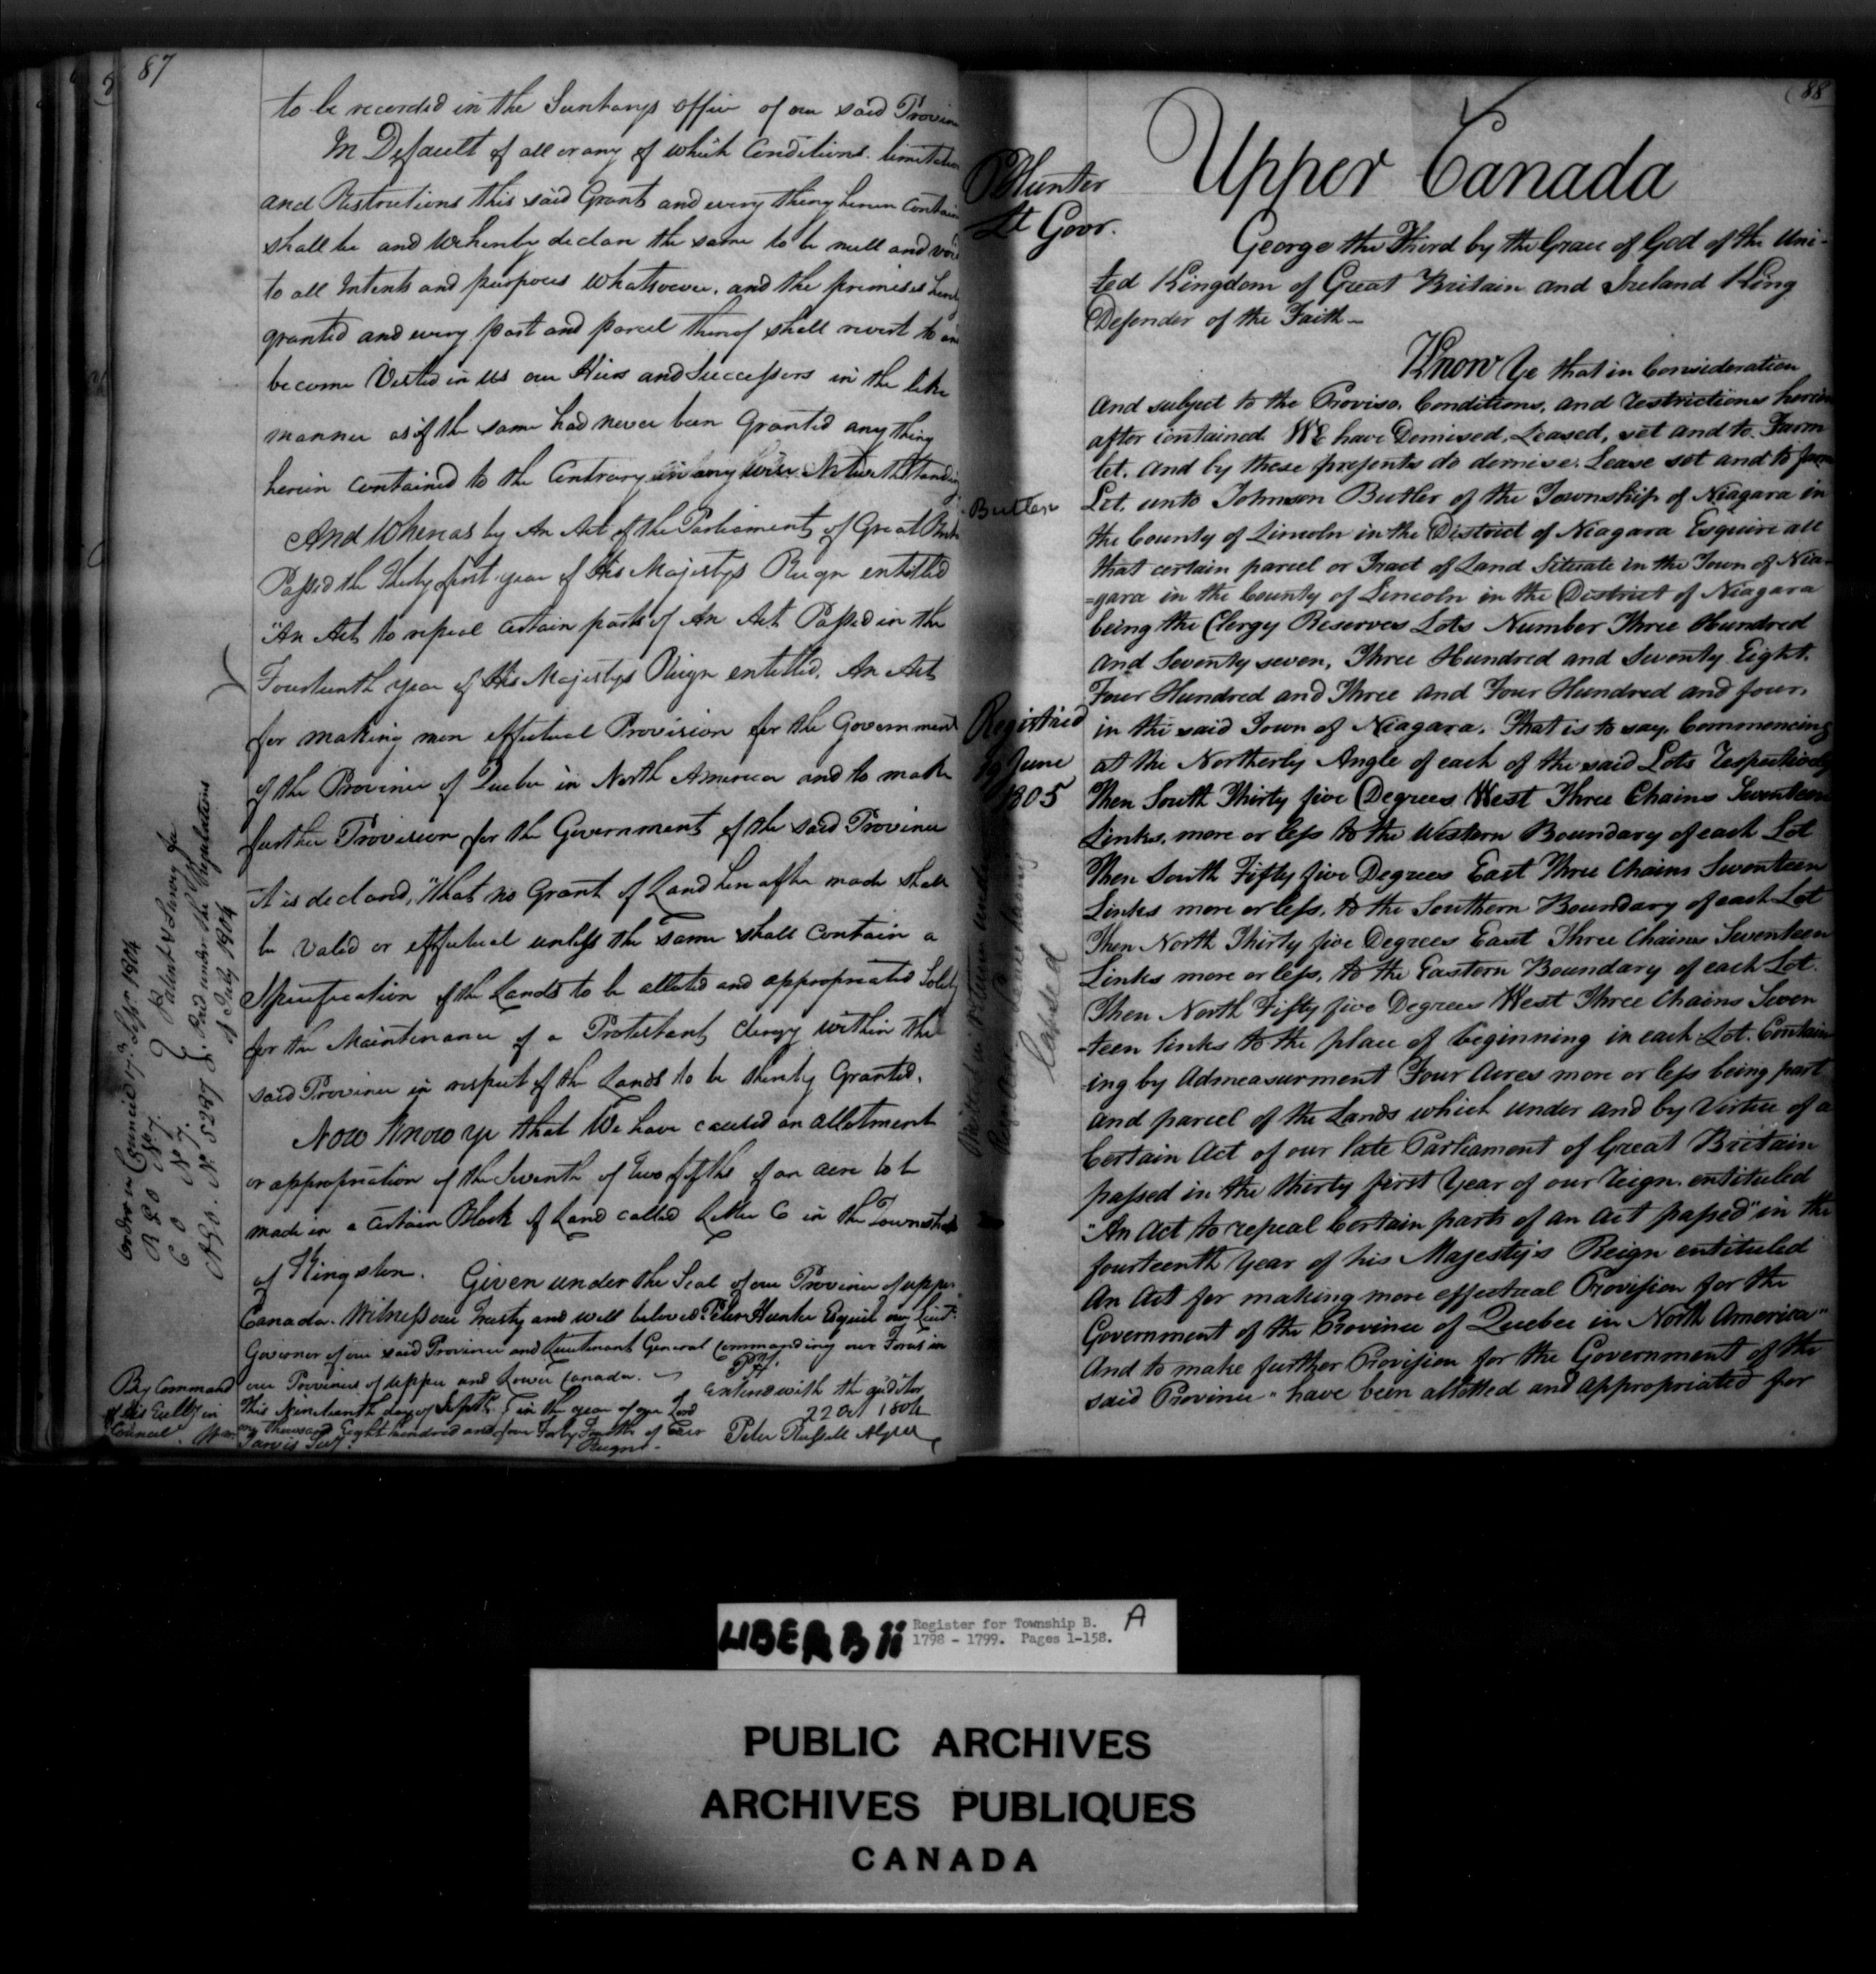 87
to be recorded in the Secretarys office of our said Province
In Default of all or any of which Conditions. limitations
and Restrictions this said Grant and every thing herein contain
shall be and We hereby declare the same to be null and void
to all Intents and purposes whatsoever. and the premises hereby
granted and every part and parcel thereof shall revert to and
become Vested in us our Heirs and Successors in the like
manner as if the same had never been Granted any thing
herein contained to the Contrary in any wise Notwithstanding
And Whereas by An Act of the Parliament of Great Brit
Passed the Thirty first year of His Majestys Reign entitled
"An Act to repeal certain parts of An Act Passed in the
Fourteenth year of His Majestys Reign entitled. An Act
for making more effectual Provision for the Government
of the Province of Quebec in North America and to make
further Provision for the Government of the said Province
it is declared, "that no Grant of Land hereafter made shall
be valid or effectual unless the same shall contain a
Specification of the Lands to be allotted and appropriated Solely
for the Maintenance of a Protestant Clergy within the
said Province in respect of the Lands to be thereby Granted.
Now Know ye that We have caused an allotment
or appropriation of the Seventh of two fifths of an acre to be
made in a certain Block of Land called Letter C in the Township
of Kingston. Given under the Seal of our Province of upper
Canada. Witness our Trusty and well beloved Peter Hunter Esquire our Lieut.
Governor of our said Province and Lieutenant General Commanding our Forces in
our Provinces of Upper and Lower Canada. P H.
This Nineteenth day of Septr. in the year of our Lord
one Thousand Eight hundred and four Forty Fourth of Our
Reign.
Entered with the auditor
22 Oct 1804
Peter Russell
By Command
of His Excelly in
Council. Wm.
Jarvis Secy.
Order in Council 17th Sepr. 1804
R G O No. 7.
C O No 7.
A G O. No. 5287
Patent & Survey fee
Paid under the Regulations of
July 1804
88
Upper Canada
P Hunter
Lt Govr.
George the Third by the Grace of God of the Uni-
ted Kingdom of Great Britain and Ireland King
Defender of the Faith—
Know Ye that in Consideration
and subject to the Proviso. Conditions, and restrictions herein
after contained. We have Demised, Leased, set and to Farm
let. and by these presents do demise. Lease set and to farm
Butler
Let. unto Johnson Butler of the Township of Niagara in
the County of Lincoln in the District of Niagara Esquire all
that certain parcel or Tract of Land Situate in the Town of Nia-
=gara in the County of Lincoln in the District of Niagara
being the Clergy Reserves Lots Number Three Hundred
and Seventy seven, Three Hundred and Seventy Eight.
Four Hundred and Three and Four Hundred and four.
Registered
19 June
1805
in the said Town of Niagara. That is to say. Commencing
at the Northerly Angle of each of the said Lots respectively
Then South Thirty five Degrees West Three Chains Seventeen
Links. more or less to the Western Boundary of each Lot
Then South Fifty five Degrees East Three Chains Seventeen
Links more or less. to the Southern Boundary of each Lot
Then North Thirty five Degrees East Three Chains Seventeen
Links more or less. to the Eastern Boundary of each Lot.
Then North Fifty five Degrees West Three Chains Seven
-teen links to the place of beginning in each Lot. Contain
=ing by Admeasurment Four Acres more or less being part
and parcel of the Lands which under and by Virtue of a
Certain Act of our late Parliament of Great Britain
passed in the thirty first Year of our reign. entituled
"An Act to repeal Certain parts of an Act passed" in the
fourteenth Year of his Majesty's Reign entituled
An Act for making more effectual Provision for the
Government of the Province of Quebec in North America"
And to make further Provision for the Government of the
said Province" have been allotted and appropriated for
lapsed
LIBER B ii
Register for Township B.
1798 - 1799. Pages 1-158.
A
PUBLIC ARCHIVES
ARCHIVES PUBLIQUES
CANADA